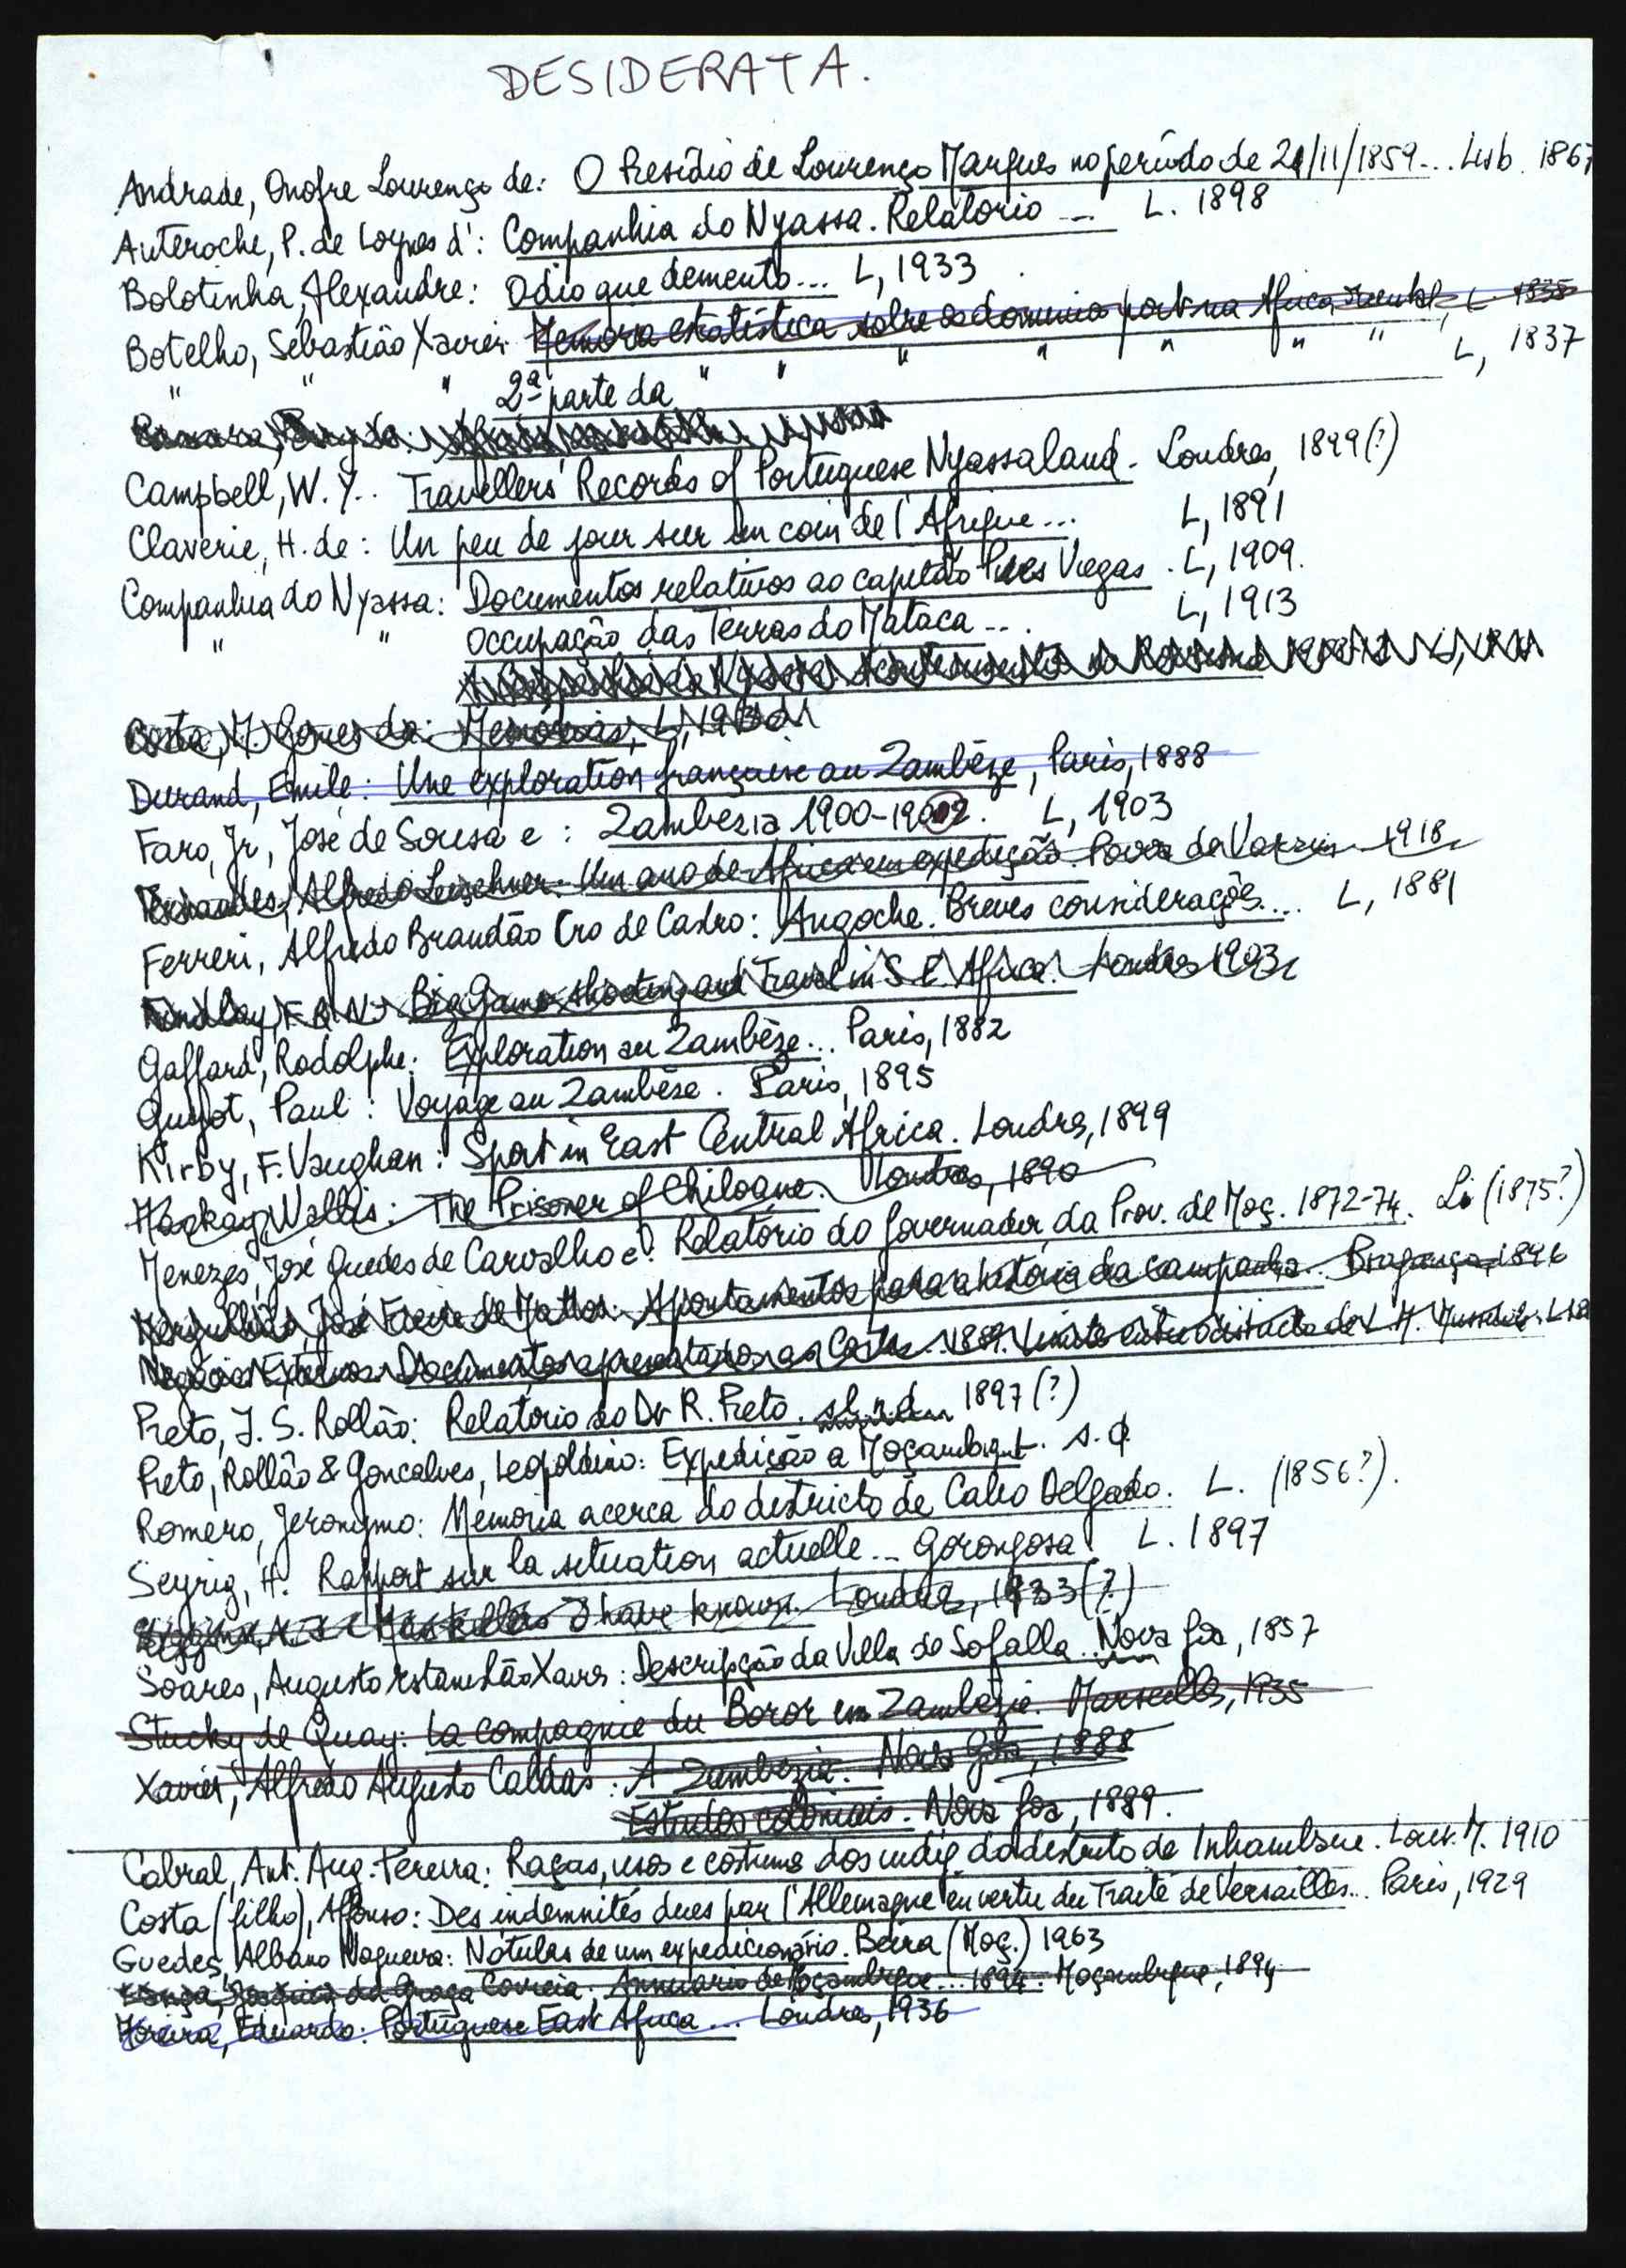 DESIDERATA.
Andrade, Onofre Lourenço de: O Presídio de Lourenço Marques no período de 24/11/1859... Lisb. 1867
Auteroche, P. de Loynes d': Companhia do Nyassa. Relatorio ... L. 1898
Bolotinha, Alexandre: Odio que demento... L, 1933
Botelho, Sebastião Xavier: Memoria estatística sobre os dominios port. na Africa Oriental, L. 1835
" " " 2ª parte da " " " " " " " L, 1837
Campbell, W. Y.. Travellers' Records of Portuguese Nyassaland. Londres, 1899(?)
Claverie, H. de: Un peu de jour sur un coin de l'Afrique... L, 1891
Companhia do Nyassa: Documentos relativos ao capitão Pires Viegas. L, 1909.
" " Occupação das Terras do Mataca... L, 1913
A Companhia do Nyassa.
Costa, M. Gomes da: Memórias, L, 193
Durand, Emile: Une exploration française au Zambèze, Paris, 1888
Faro, Jr, José de Sousa e: Zambezia 1900-1902. L, 1903
Fernandes, Alfredo Leischner. Um ano de Africa em expedição. Povoa de Varzim 1918
Ferreri, Alfredo Brandão Cro de Castro: Angoche. Breves considerações... L, 1881
Findlay, F R N. Big Game shooting and Travel in S. E. Africa. Londres 1903
Gaffard, Rodolphe: Exploration au Zambèze... Paris, 1882
Guyot, Paul: Voyage au Zambèse. Paris, 1895
Kirby, F. Vaughan: Sport in East Central Africa. Londres, 1899
Mackay, Wallis: The Prisoner of Chiloane. Londres, 1890
Menezes, José Guedes de Carvalho e: Relatório do Governador da Prov. de Moç. 1872-74. Li (1875?)
Mergulhão, José Freire de Mattos: Apontamentos para a historia da campanha. Bragança, 1896
Negocios Externos. Documentos apresentados as Cortes. 1889. Limites entre o districto de L. M.
Preto, J. S. Rollão: Relatório do Dr R. Preto. 1897(?)
Preto, Rollão & Goncalves, Leopoldino: Expedição a Moçambique. s.d
Romero, Jeronymo: Memoria acerca do districto de Cabo Delgado. L. (1856?).
Seyrig, H. Rapport sur la situation actuelle... Gorongosa L. 1897
I have known. Londres, 1933(?)
Soares, Augusto Estanislão Xavier: Descripção da Villa de Sofalla.. Nova Goa, 1857
Stucky de Quay: La compagnie du Boror en Zambezie. Marseille, 1935
Xavier, Alfredo Augusto Caldas: A Zambezia. Nova Goa, 1888
Estudos coloniais. Nova Goa, 1889.
Cabral, Ant. Aug. Pereira: Raças, usos e costumes dos indig. do distrito de Inhambane. Lour. M. 1910
Costa (filho), Affonso: Des indemnités dues par l'Allemagne en vertu du Traité de Versailles... Paris, 1929
Guedes, Albano Nogueira: Nótulas de um expedicionário. Beira (Moç.) 1963
da Graça Correia: Annuario de Moçambique... 1894. Moçambique, 1894
Moreira, Eduardo: Portuguese East Africa... Londres, 1936